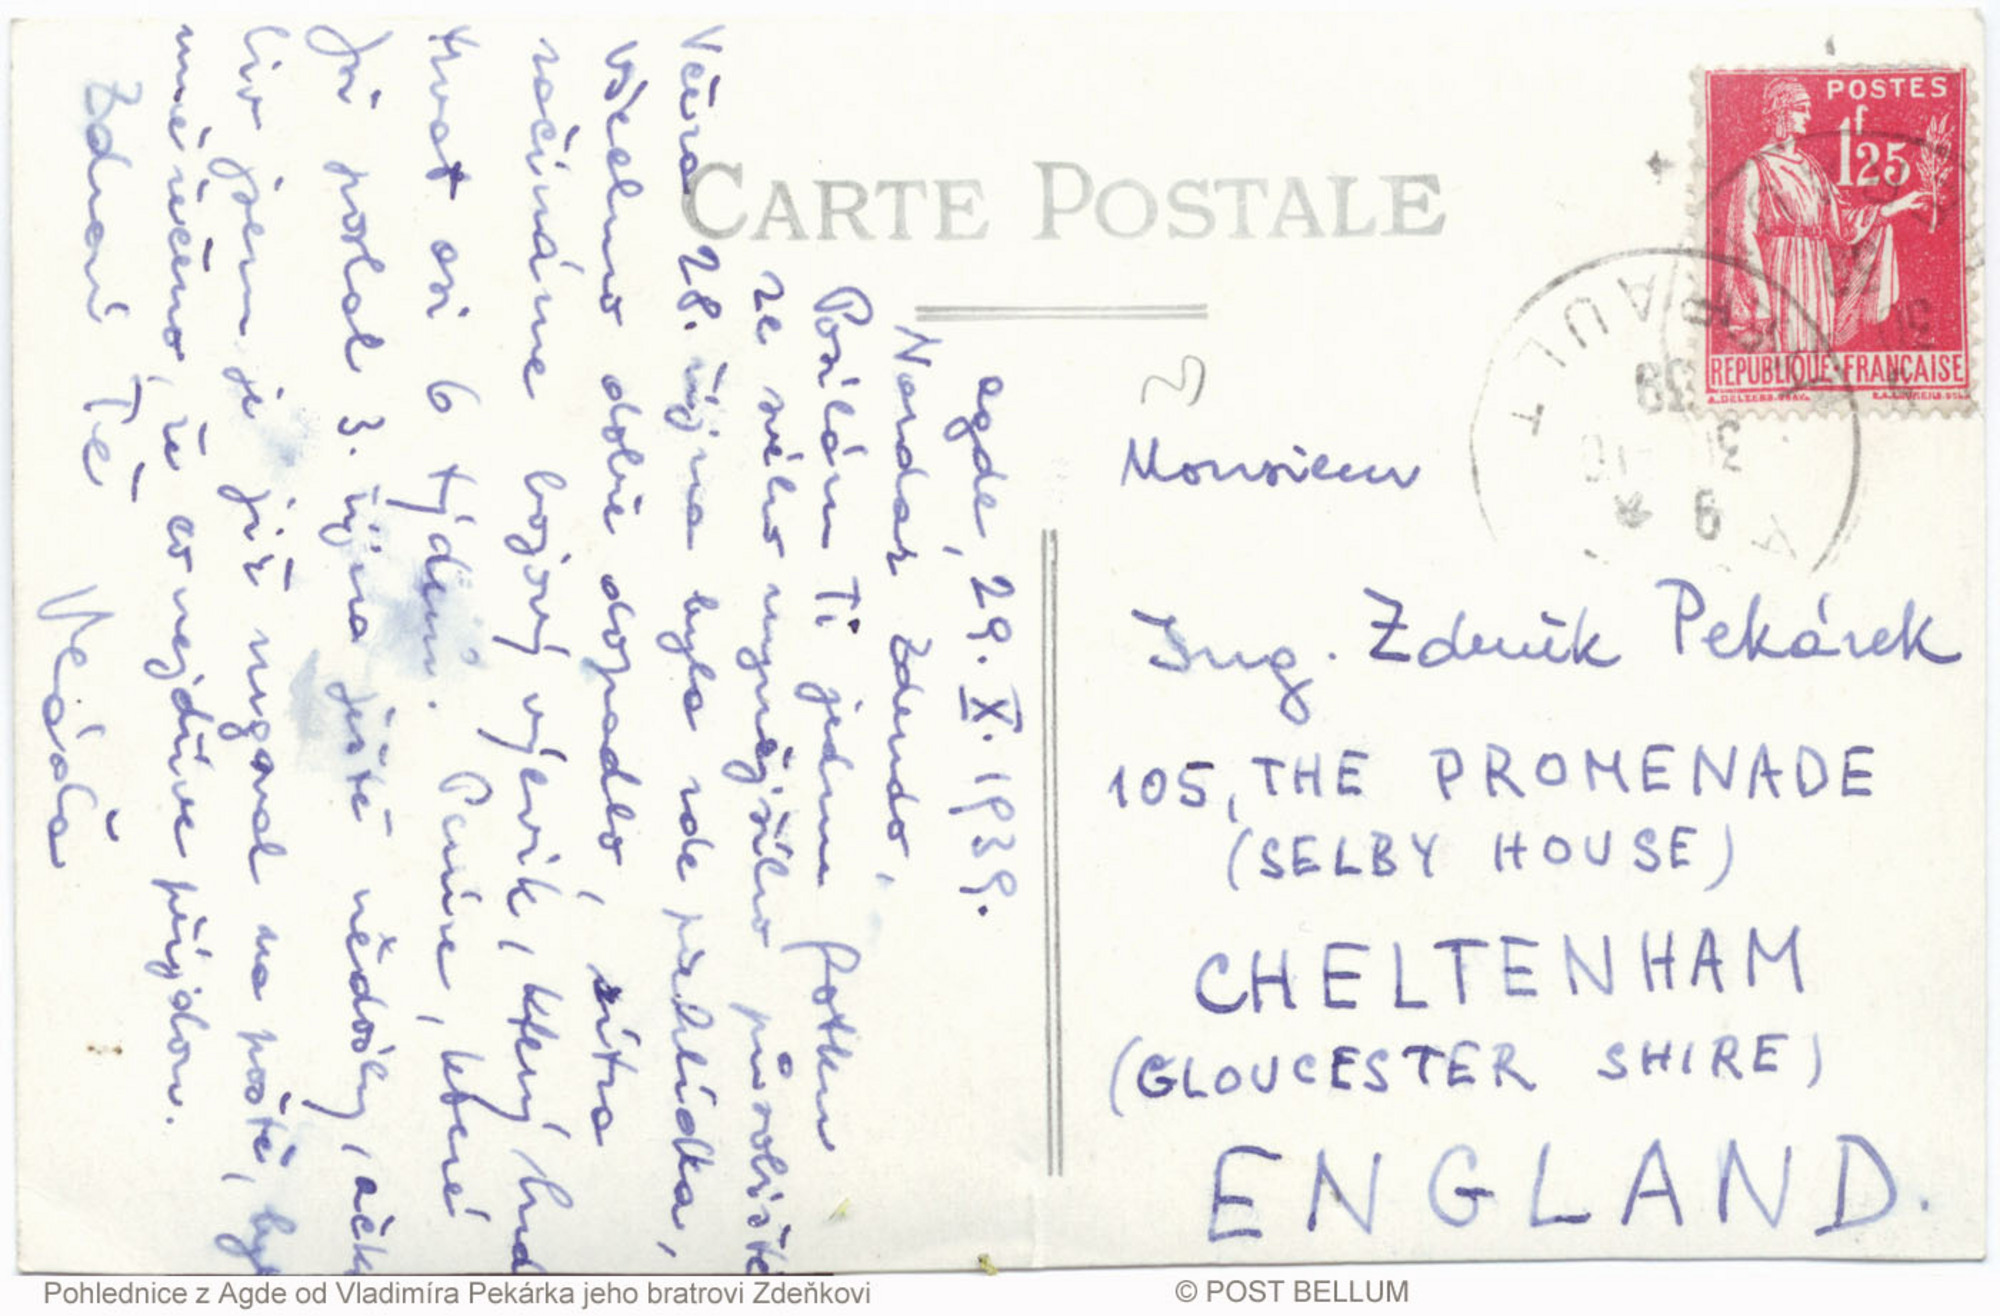 CARTE POSTALE
POSTES
1f25
REPUBLIQUE FRANÇAISE
HERAULT
9
31 -10
39
Agde, 29. X. 1939.
Nazdar Zdendo,
Posílám Ti jednu fotku
ze svého nynějšího působiště
Včera 28. října byla zde přehlídka,
Všechno dobře dopadlo, zítra
začínáme bojový výcvik, který bud
trvat asi 6 týdnů. Peníze, které
jsi poslal 3. října ještě nedošly, ačk
liv jsem je již urgoval na poště, by
mně řečeno, že co nejdříve přijdou.
Zdraví Tě
Vláďa
3
Monsieur
Ing. Zdeněk Pekárek
105, THE PROMENADE
(SELBY HOUSE)
CHELTENHAM
(GLOUCESTER SHIRE)
ENGLAND.
Pohlednice z Agde od Vladimíra Pekárka jeho bratrovi Zdeňkovi
© POST BELLUM